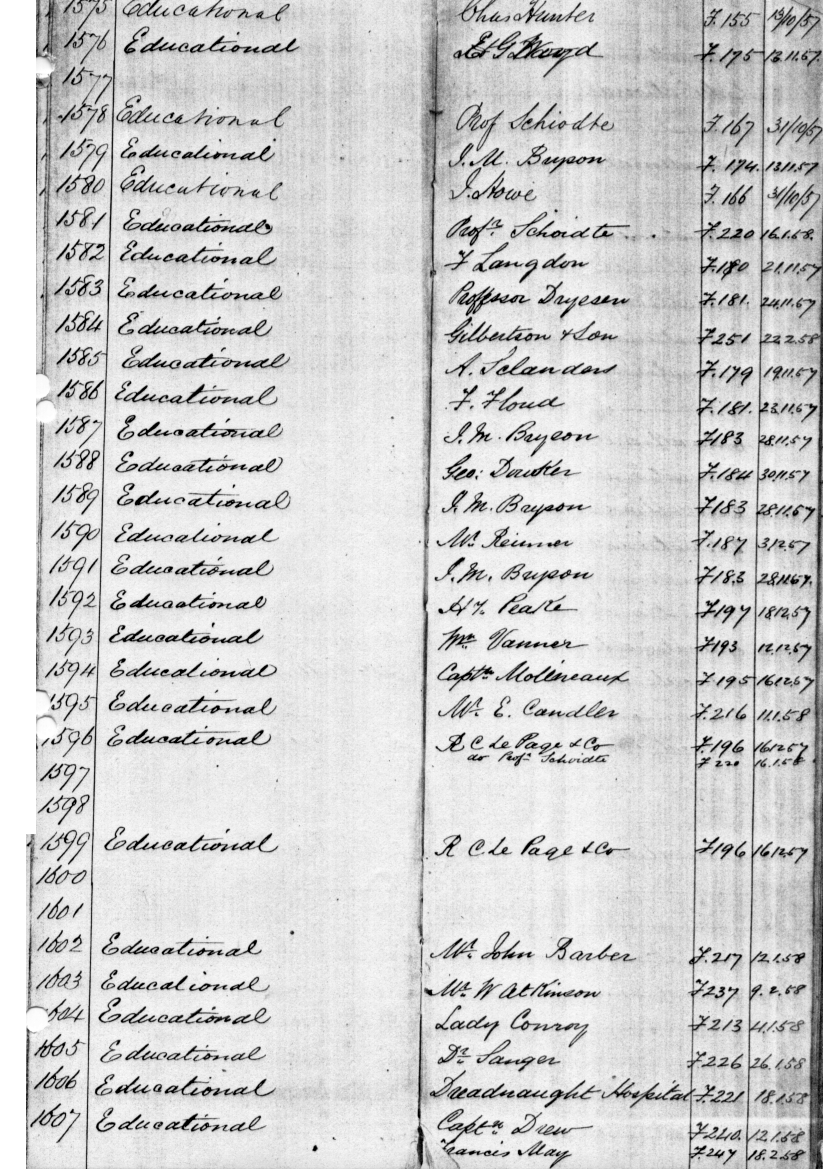 1575 Educational Chas Hunter F. 155 13/10/57
1576 Educational F. 175 13.11.57.
1577
1578 Educational Prof Schiodte F. 167 31/10/57
1579 Educational J. M. Bryson F. 174. 13.11.57
1580 Educational J. Howe F. 166 31/10/57
1581 Educational Profr. Schoidte F. 220 16.1.58.
1582 Educational F Langdon F. 180 21.11.57
1583 Educational Proffessor Drysen F. 181. 24.11.57
1584 Educational Gilbertson & Son F 251 22.2.58
1585 Educational A. Sclanders F. 179 19.11.57
1586 Educational F. Floud F. 181. 23.11.57
1587 Educational J. M. Bryson F 183 28.11.57
1588 Educational Geo: Dowker F. 184 30.11.57
1589 Educational J. M. Bryson F 183 28.11.57
1590 Educational Mr. Reimer F. 187 3.12.57
1591 Educational J. M. Bryson F 183 28.11.57.
1592 Educational H. T. Peake F 197 18.12.57
1593 Educational Wm. Vanner F 193 12.12.57
1594 Educational Captn. Molineaux F 195 16.12.57
1595 Educational Mr. E. Candler F. 216 11.1.58
1596 Educational R C Le Page & Co F. 196 16.12.57
do Profr Schoidte F 220 16.1.58
1597
1598
1599 Educational R C Le Page & Co F 196 16.12.57
1600
1601
1602 Educational Mr. John Barber F. 217 12.1.58
1603 Educational Mr. W Atkinson F 237 9.2.58
1604 Educational Lady Conroy F 213 4.1.58
1605 Educational Dr. Sanger F. 226 26.1.58
1606 Educational Dreadnaught Hospital F. 221 18.1.58
1607 Educational Captn. Drew F. 210. 12.1.58
Francis May F. 247 18.2.58